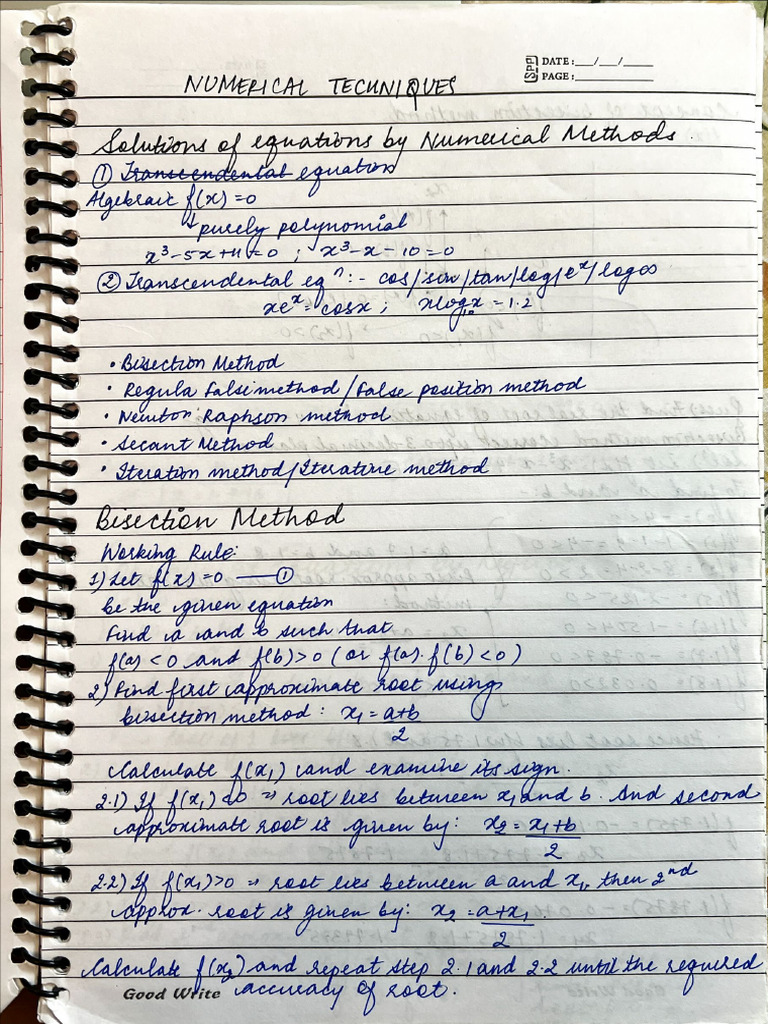 SPP DATE: __/__/____
PAGE: ________
NUMERICAL TECHNIQUES
Solutions of equations by Numerical Methods.
① Transcendental equation
Algebraic f(x)=0
↳ purely polynomial
x³-5x+11=0 ; x³-x-10=0
② Transcendental eqⁿ:- cos/sin/tan/log/eˣ/log
xeˣ=cosx; xlog₁₀x=1.2
• Bisection Method
• Regula falsi method/False position method
• Newton Raphson method
• Secant Method
• Iteration method/Iterative method
Bisection Method
Working Rule:
1) Let f(x)=0 —— ①
be the given equation
Find a and b such that
f(a)<0 and f(b)>0 (or f(a).f(b)<0)
2) Find first approximate root using
bisection method: x₁=a+b/2
Calculate f(x₁) and examine its sign.
2.1) If f(x₁)<0 ⇒ root lies between x₁ and b. And second
approximate root is given by: x₂=x₁+b/2
2.2) If f(x₁)>0 ⇒ root lies between a and x₁, then 2nd
approx. root is given by: x₂=a+x₁/2
Calculate f(x₂) and repeat step 2.1 and 2.2 until the required
Good Write accuracy of root.